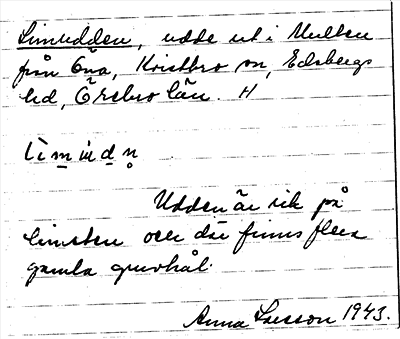 Limudden, udde ut i Multen
från Önа, Kvistbro sn, Edsbergs
hd, Örebro län. H
li`m ɯ d n̥
Udden är rik på
limsten och där finns flera
gamla gruvhål.
Anna Larsson 1943.